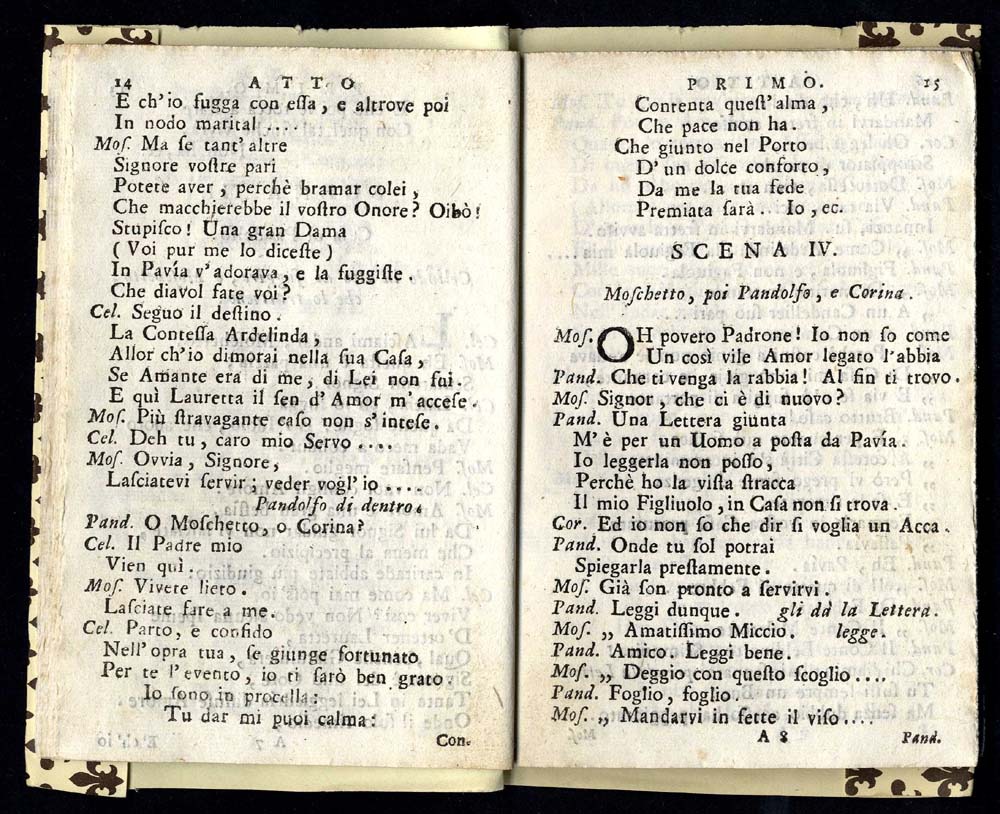 14 ATTO
E ch'io fugga con eſſa, e altrove poi
In nodo marital ....
Moſ. Ma ſe tant'altre
Signore voſtre pari
Potete aver, perchè bramar colei,
Che macchjerebbe il voſtro Onore? Oibò!
Stupiſco! Una gran Dama
( Voi pur me lo diceſte )
In Pavía v'adorava, e la fuggiſte.
Che diavol fate voi?
Cel. Seguo il deſtino.
La Conteſſa Ardelinda,
Allor ch'io dimorai nella ſua Caſa,
Se Amante era di me, di Lei non fui.
E quì Lauretta il ſen d'Amor m'acceſe.
Moſ. Più ſtravagante caſo non s'inteſe.
Cel. Deh tu, caro mio Servo ....
Moſ. Ovvia, Signore,
Laſciatevi ſervir; veder vogl'io ....
Pandolfo di dentro.
Pand. O Moſchetto, o Corina?
Cel. Il Padre mio
Vien quì.
Moſ. Vivete lieto.
Laſciate fare a me.
Cel. Parto, e confido
Nell'opra tua, ſe giunge fortunato
Per te l'evento, io ti ſarò ben grato.
Io ſono in procella:
Tu dar mi puoi calma:
Con.
PRIMO. 15
Contenta queſt'alma,
Che pace non ha.
Che giunto nel Porto
D'un dolce conforto,
Da me la tua fede
Premiata ſarà.. Io, ec.
SCENA IV.
Moſchetto, poi Pandolfo, e Corina.
Moſ. OH povero Padrone! Io non ſo come
Un così vile Amor legato l'abbia
Pand. Che ti venga la rabbia! Al fin ti trovo.
Moſ. Signor, che ci è di nuovo?
Pand. Una Lettera giunta
M'è per un Uomo a poſta da Pavía.
Io leggerla non poſſo,
Perchè ho la viſta ſtracca.
Il mio Figliuolo, in Caſa non ſi trova.
Cor. Ed io non ſo che dir ſi voglia un Acca.
Pand. Onde tu ſol potrai
Spiegarla preſtamente.
Moſ. Già ſon pronto a ſervirvi.
Pand. Leggi dunque. gli dà la Lettera.
Moſ. „ Amatiſſimo Miccio. legge.
Pand. Amico. Leggi bene.
Moſ. „ Deggio con queſto ſcoglio ....
Pand. Foglio, foglio.
Moſ. „ Mandarvi in fette il viſo ....
A 8 Pand.